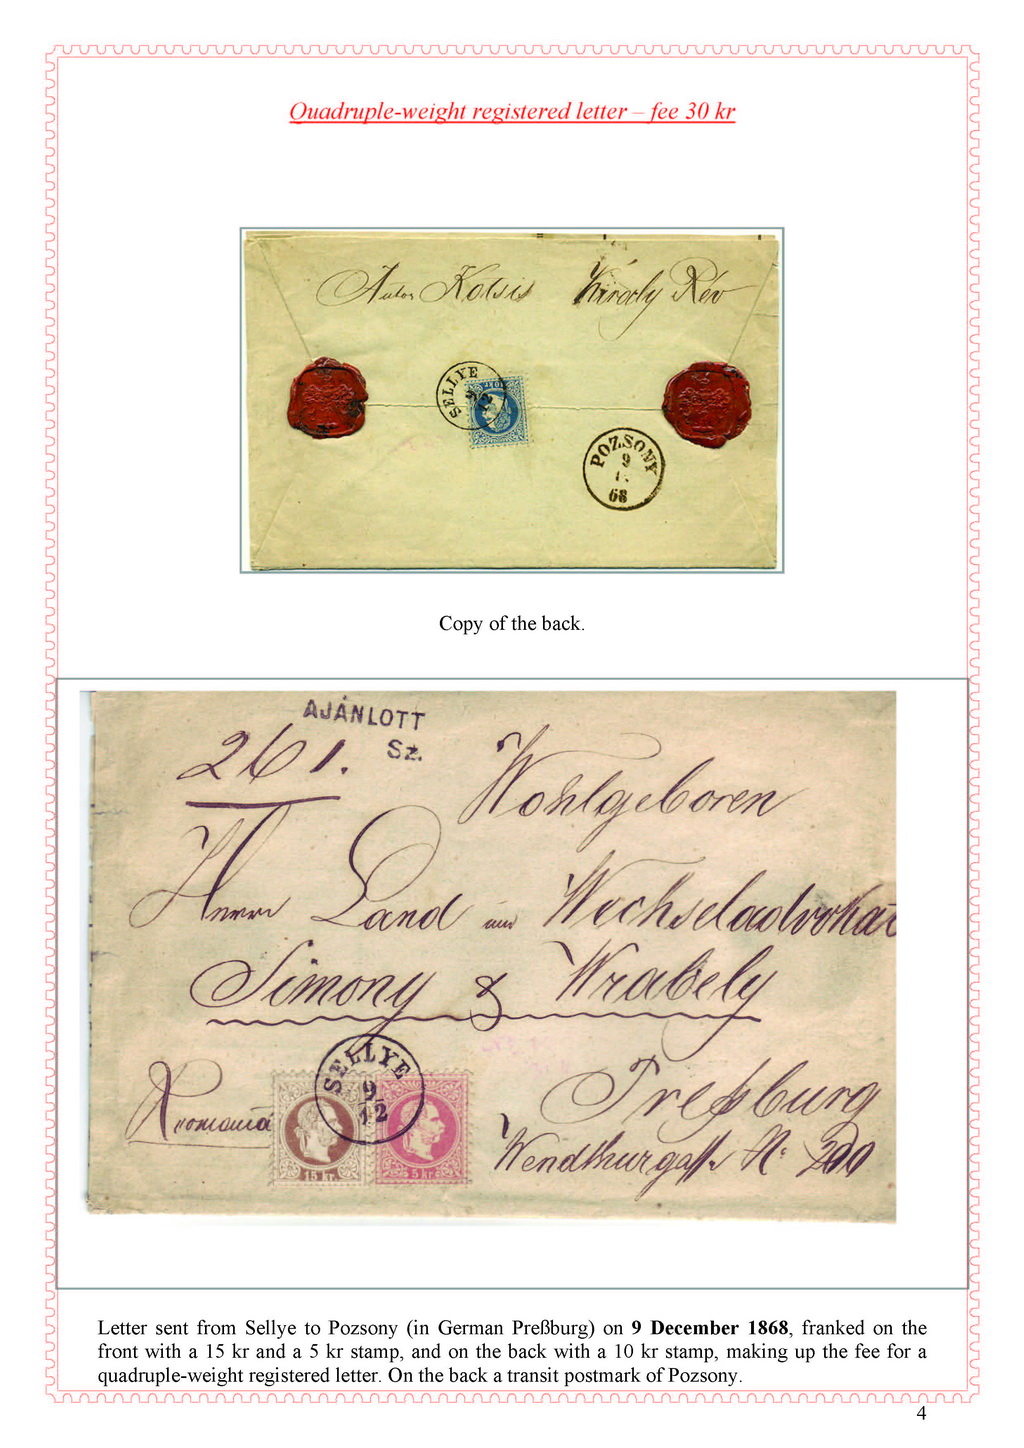 Quadruple-weight registered letter – fee 30 kr
Kotsis Király Rév
SELLYE
9
12
POZSONY
9
68
Copy of the back.
AJÁNLOTT
Sz.
261.
Wohlgeboren
Herrn Land und Wechseladvokat
Simony & Wrabely
SELLYE
9
12
Preßburg
No 200
15 kr.
5 kr.
Letter sent from Sellye to Pozsony (in German Preßburg) on 9 December 1868, franked on the
front with a 15 kr and a 5 kr stamp, and on the back with a 10 kr stamp, making up the fee for a
quadruple-weight registered letter. On the back a transit postmark of Pozsony.
4